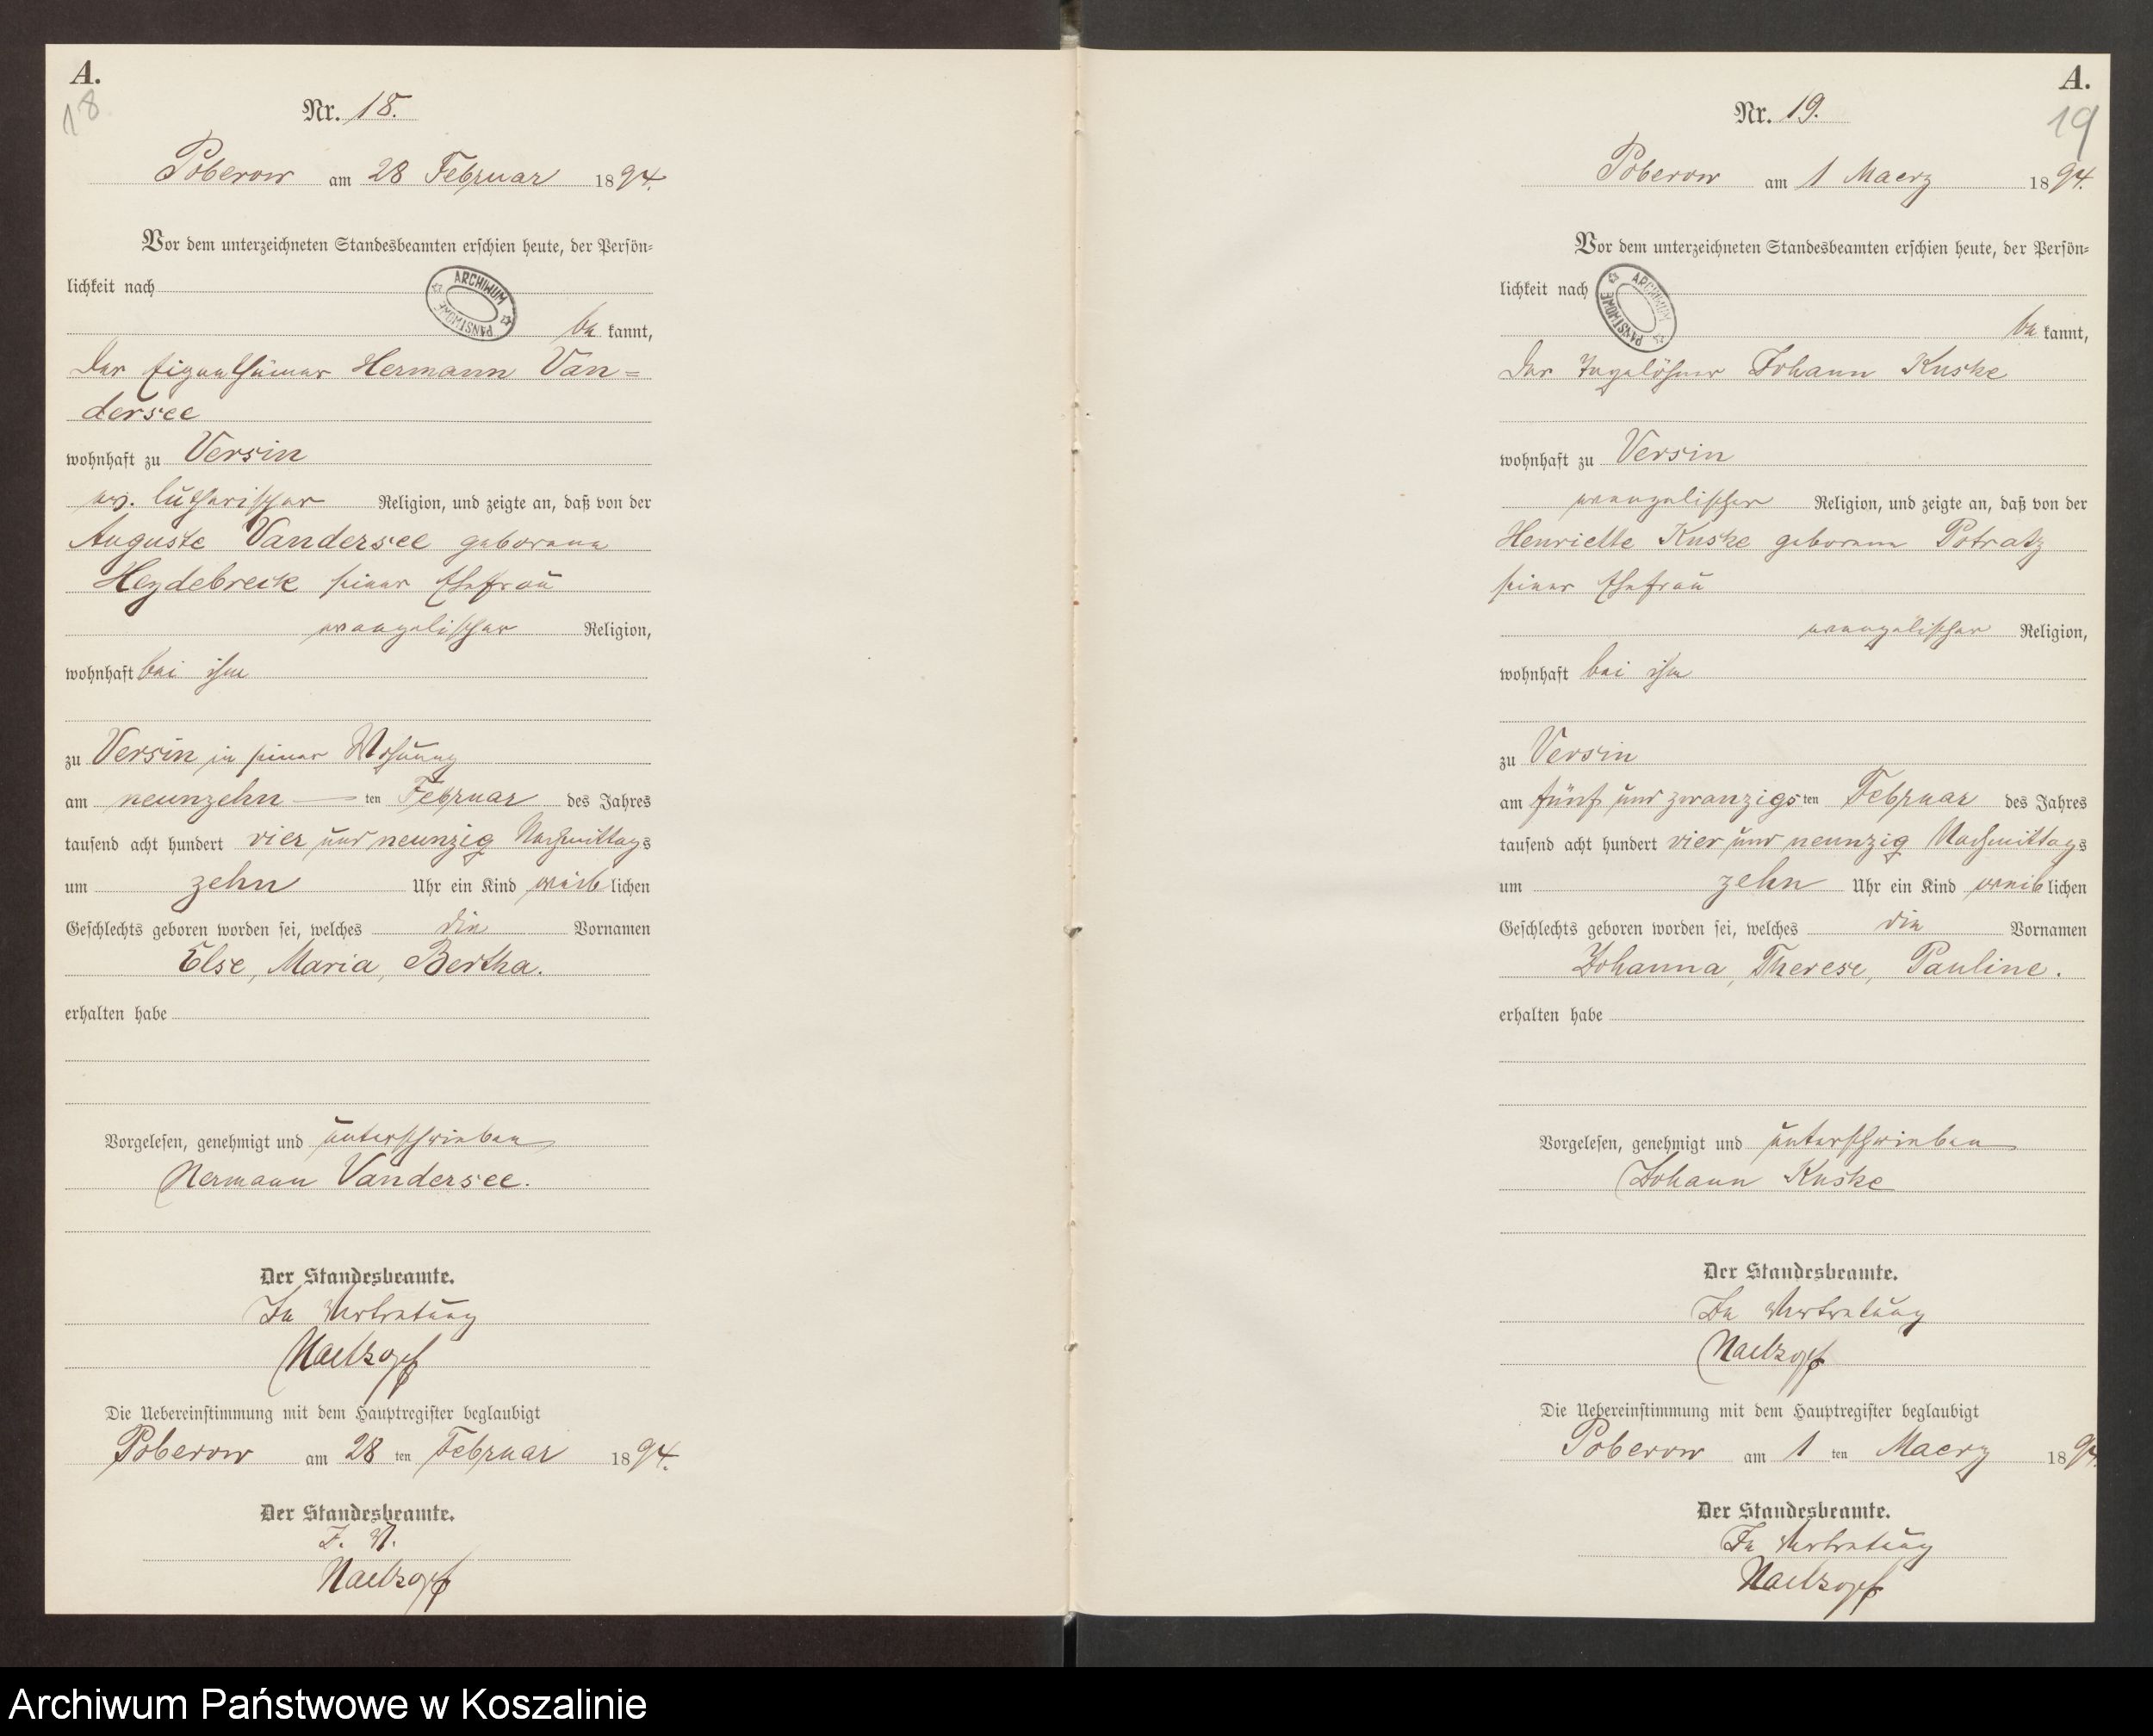 A.
18
Nr. 18.
Poberow am 28 Februar 1894.
Vor dem unterzeichneten Standesbeamten erschien heute, der Persön=
lichkeit nach
ARCHIWUM PAŃSTWOWE
be kannt,
Der Eigenthümer Hermann Van=
dersee
wohnhaft zu Versin
ev. lutherischer Religion, und zeigte an, daß von der
Auguste Vandersee geborene
Heydebreck seiner Ehefrau
evangelischer Religion,
wohnhaft bei ihm
zu Versin in seiner Wohnung
am neunzehn — ten Februar des Jahres
tausend acht hundert vier und neunzig Nachmittags
um zehn Uhr ein Kind weib lichen
Geschlechts geboren worden sei, welches die Vornamen
Else, Maria, Bertha.
erhalten habe
Vorgelesen, genehmigt und unterschrieben
Hermann Vandersee.
Der Standesbeamte.
In Vertretung
Naetzopf
Die Uebereinstimmung mit dem Hauptregister beglaubigt
Poberow am 28 ten Februar 1894.
Der Standesbeamte.
I. V.
Naetzopf
A.
19
Nr. 19.
Poberow am 1 Maerz 1894.
Vor dem unterzeichneten Standesbeamten erschien heute, der Persön=
lichkeit nach
ARCHIWUM PAŃSTWOWE
be kannt,
Der Tagelöhner Johann Kuske
wohnhaft zu Versin
evangelischer Religion, und zeigte an, daß von der
Henriette Kuske geborene Potratz
seiner Ehefrau
evangelischer Religion,
wohnhaft bei ihm
zu Versin
am fünf und zwanzigs ten Februar des Jahres
tausend acht hundert vier und neunzig Nachmittags
um zehn Uhr ein Kind weib lichen
Geschlechts geboren worden sei, welches die Vornamen
Johanna, Therese, Pauline.
erhalten habe
Vorgelesen, genehmigt und unterschrieben
Johann Kuske
Der Standesbeamte.
In Vertretung
Naetzopf
Die Uebereinstimmung mit dem Hauptregister beglaubigt
Poberow am 1 ten Maerz 1894.
Der Standesbeamte.
In Vertretung
Naetzopf
Archiwum Państwowe w Koszalinie